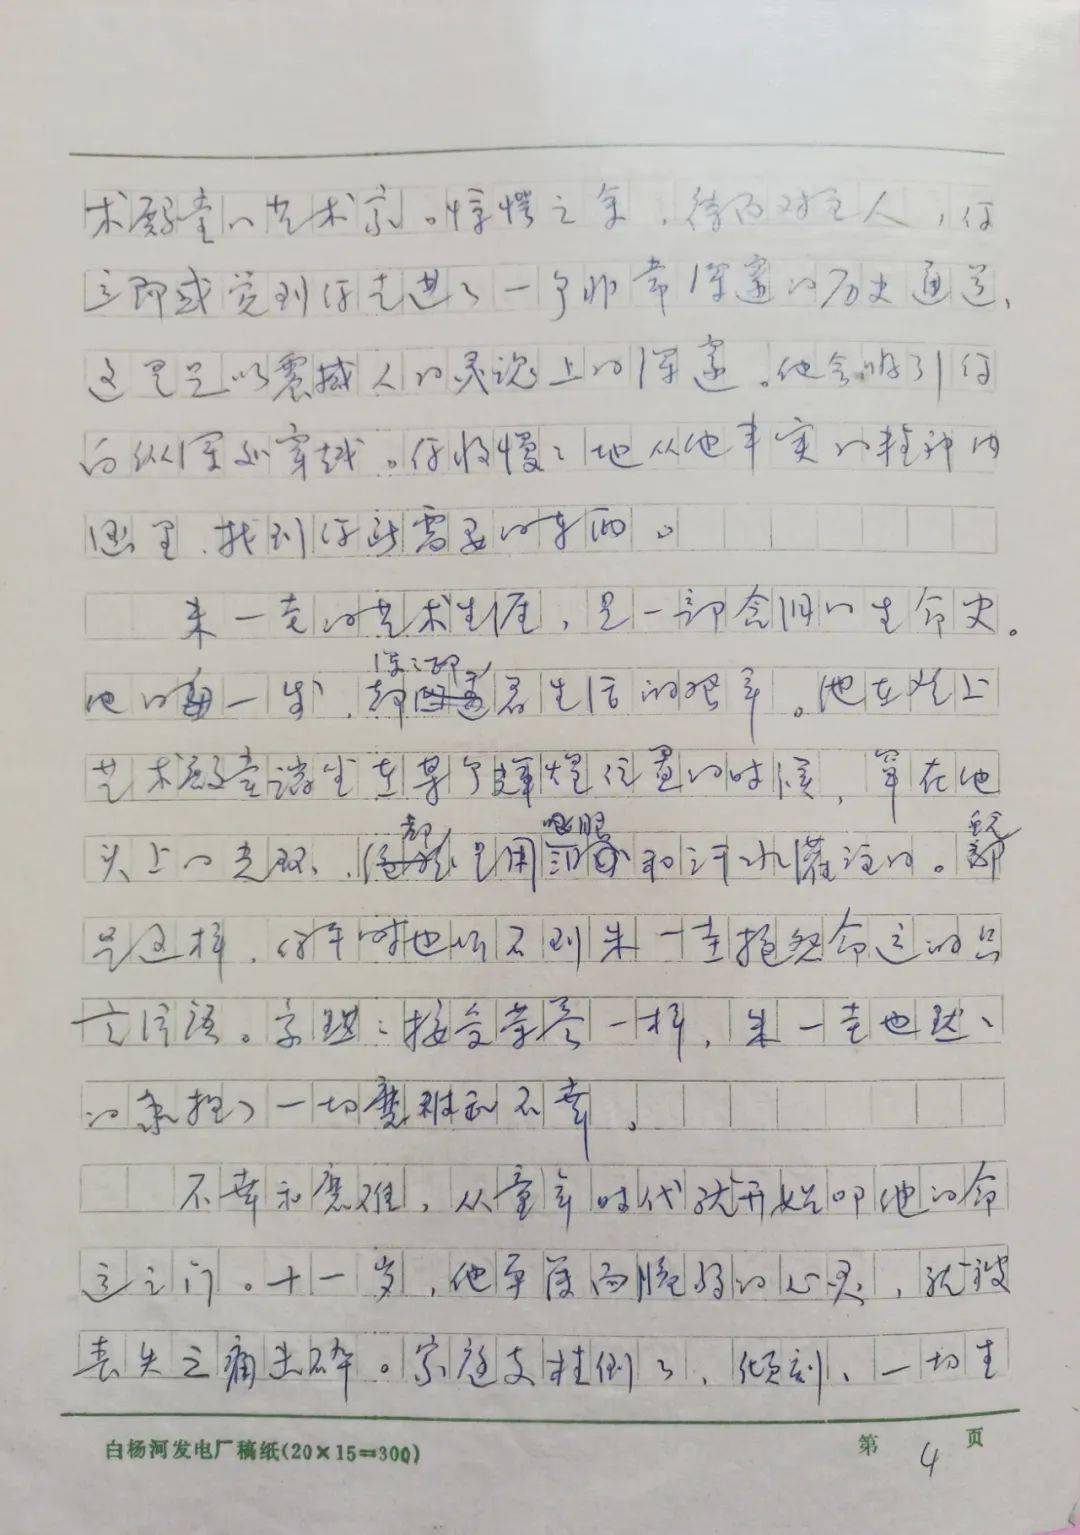 术殿堂的艺术家。惊愕之余，待面对主人，你
立即感觉到你走进了一个非常深邃的历史通道，
这里足以震撼人的灵魂上的深邃。他会吸引你
向纵深处穿越。你将慢慢地从他丰实的精神内
涵里，找到你所需要的东西。
朱一圭的艺术生涯，是一部念旧的生命史。
他的每一步，都深深印着生活的艰辛。他在登上
艺术殿堂端坐在某个辉煌位置的时候，罩在他
头上的光环，都是用眼和汗水灌注的。
是这样，你平时也听不到朱一圭抱怨命运的只
言片语。像坦坦接受荣誉一样，朱一圭也默默
的承担了一切磨难和不幸。
不幸和磨难，从童年时代就开始叩他的命
运之门。十一岁，他单薄而脆弱的心灵，就被
丧失之痛击碎。家庭支柱倒了，倾刻，一切生
白杨河发电厂稿纸(20×15=300)
第 4 页